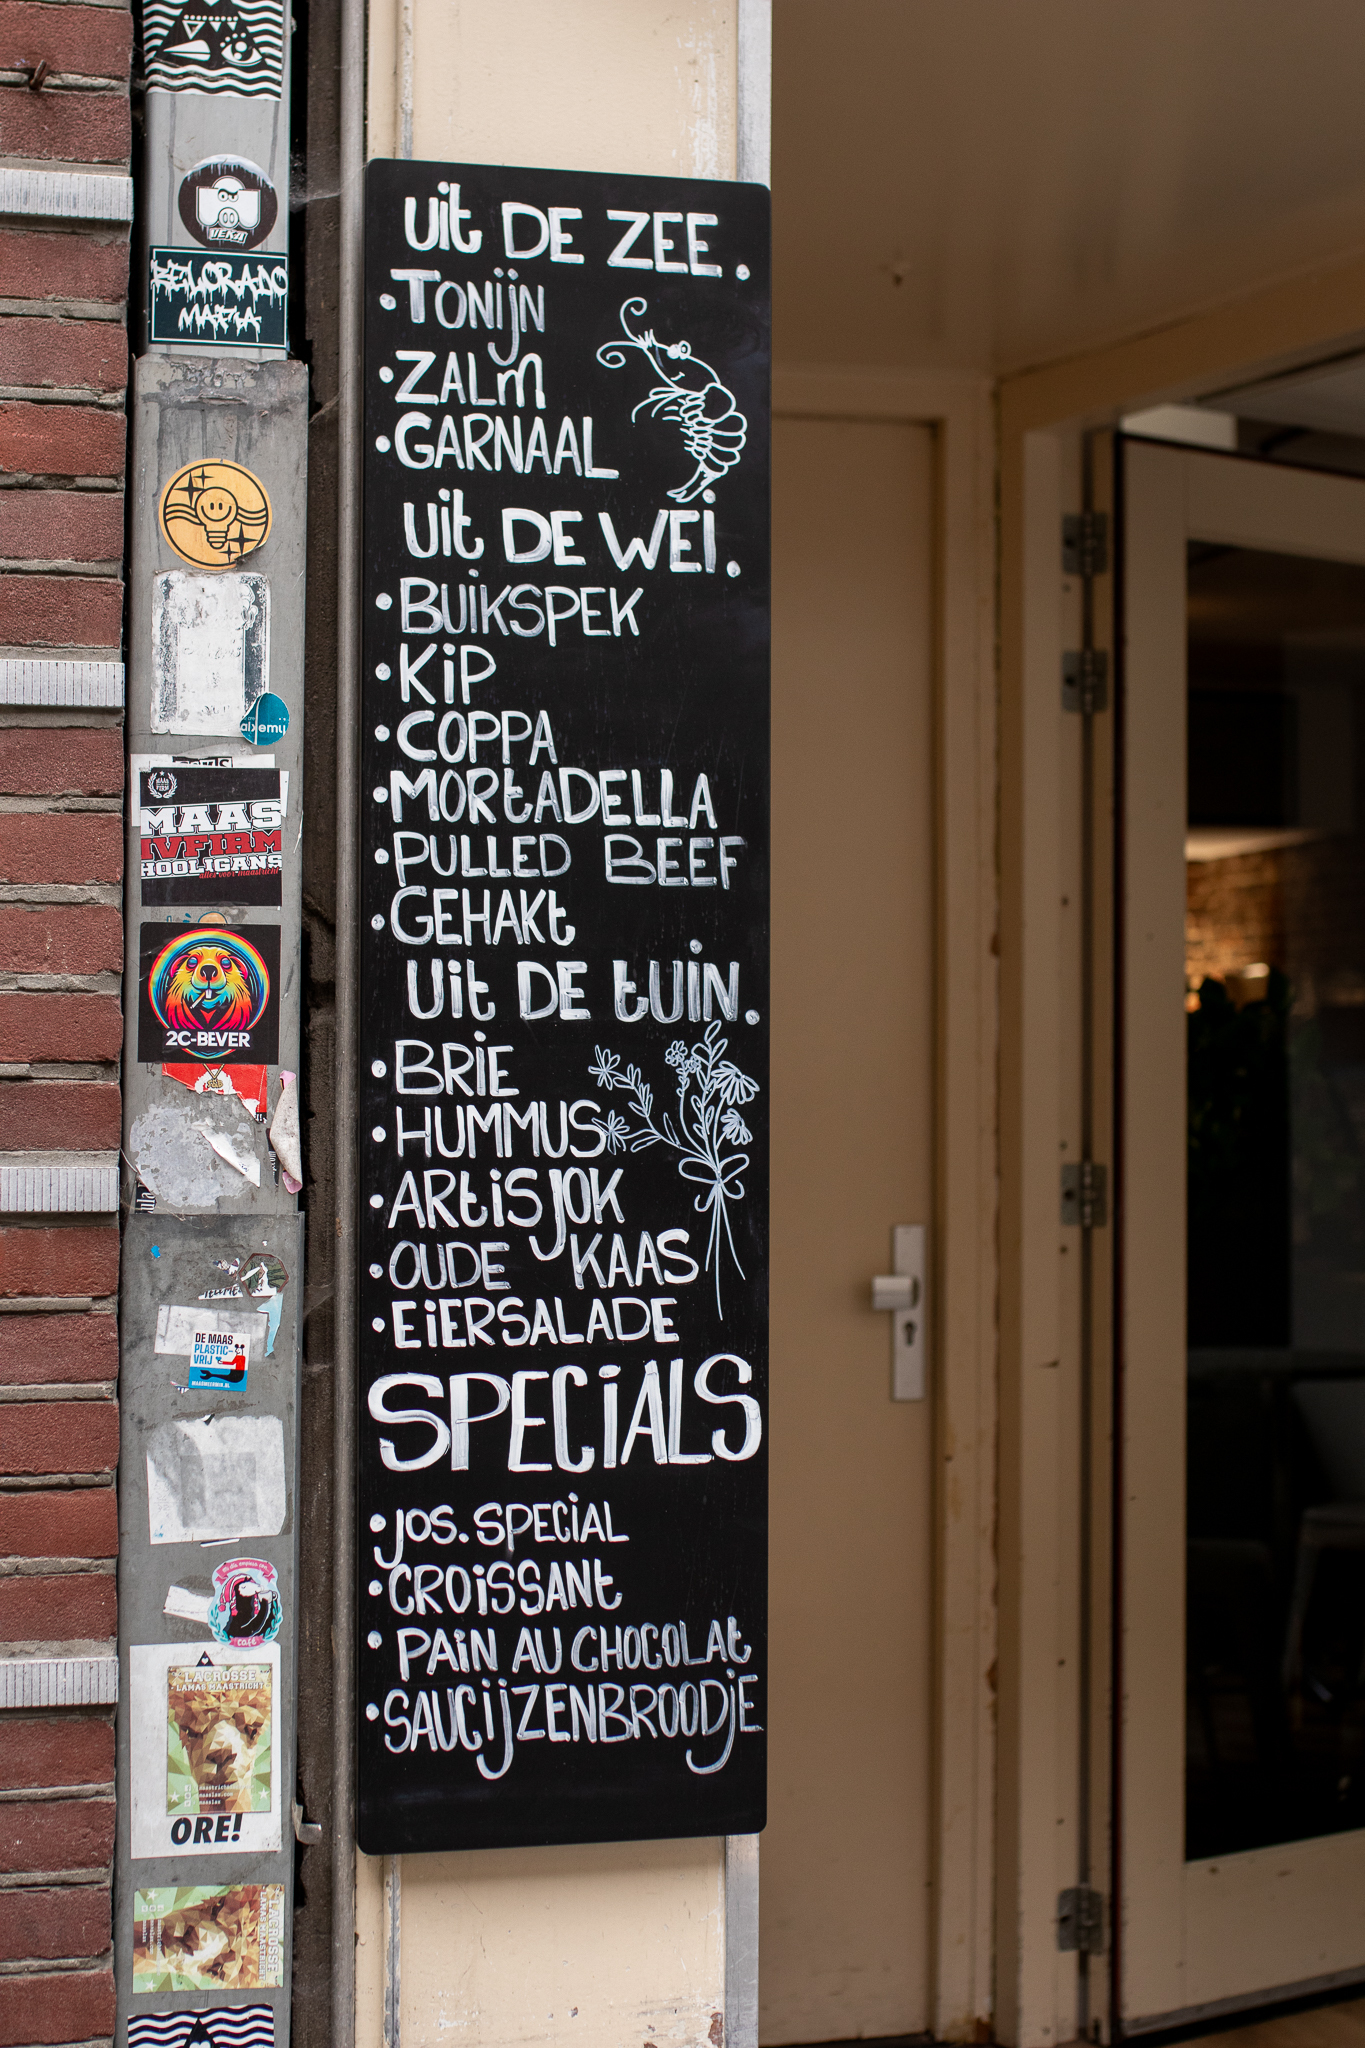 VEKA
BELORADO
MAFIA
alxemij
MAAS
IVFIRM
HOOLIGANS
alles voor maastricht
2C-BEVER
DE MAAS
PLASTIC-
VRIJ
MAASMEERMIN.NL
café
LACROSSE
LAMAS MAASTRICHT
ORE!
LACROSSE
LAMAS MAASTRICHT
uit DE ZEE.
• TONIJN
• ZALM
• GARNAAL
uit DE WEI.
• BUIKSPEK
• KIP
• COPPA
• MORTADELLA
• PULLED BEEF
• GEHAKT
Uit DE TUIN.
• BRIE
• HUMMUS
• ARTISJOK
• OUDE KAAS
• EIERSALADE
SPECIALS
• JOS. SPECIAL
• CROISSANT
• PAIN AU CHOCOLAT
• SAUCIJZENBROODJE